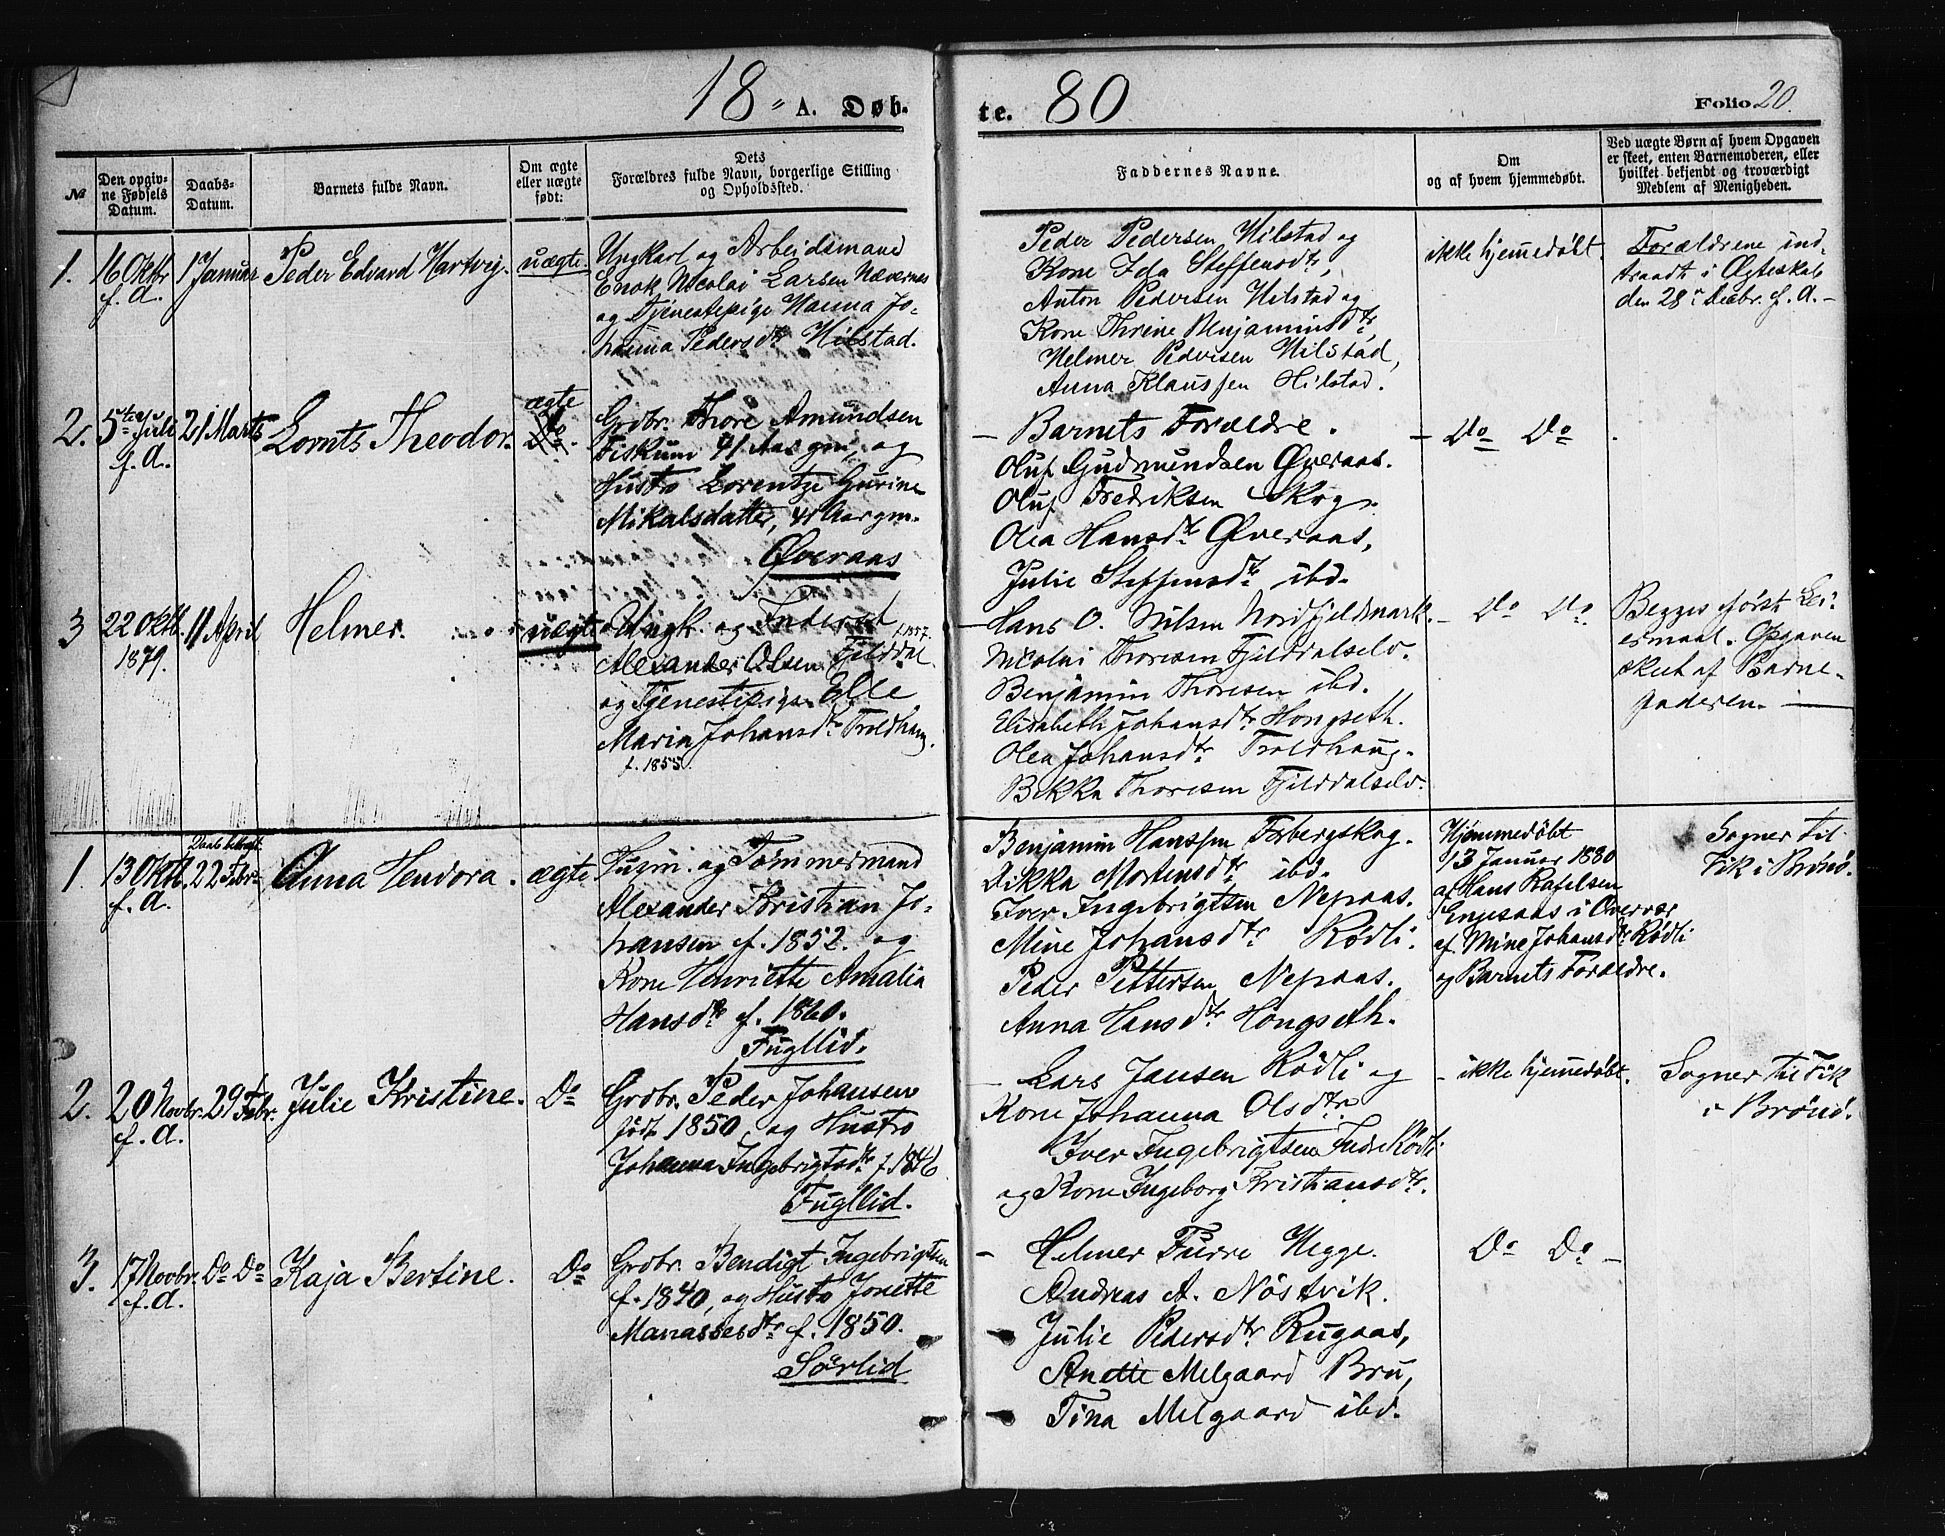 18 " A. Døb-
te. 80
Folio 20.
№
Den opgiv-
ne Fødsels
Datum.
Daabs-
Datum.
Barnets fulde Navn.
Om ægte
eller uægte
født:
Dets
Forældres fulde Navn, borgerlige Stilling
og Opholdssted.
Faddernes Navne.
Om
og af hvem hjemmedøbt.
Ved uægte Børn af hvem Opgaven
er skeet, enten Barnemoderen, eller
hvilket bekjendt og troværdigt
Medlem af Menigheden.
1.
16 Oktbr
f. A.
1 Januar
Peder Edvard Hartvig.
uægte.
Ungkarl og Arbeidsmand
Enok Nicolai Larsen Nævernes
og Tjenestepige Hanna Jo-
hanna Pedersdtr Hilstad.
Peder Pedersen Hilstad og
Kone Ida Steffensdtr,
Anton Pedersen Hilstad og
Kone Thrine Benjaminsdtr,
Helmer Pedersen Hilstad,
Anna Klaussen Hilstad.
ikke hjemmedøbt.
Forældrene ind-
traadt i Ægteskab
den 28de Decbr. f. A. -
2.
5te Juli
f. A.
21 Marts
Lornts Theodor.
ægte
Do.
Grdbr. Thore Amundsen
Fiskum 41 Aar gm, og
Hustro Lorentze Gurine
Mikalsdatter, 41 Aar gm.
Øveraas
- Barnets Forældre.
Oluf Gudmundsen Øveraas.
Oluf Fredriksen Skog.
Olea Hansdtr Øveraas,
Julie Steffensdtr ibd.
- Do Do.
3
22 Oktb.
1879.
11 April
Helmer.
uægte
Ungk. og Inderst
f. 1857.
Alexander Olsen Fjelddal
og Tjenestepige Elle
Maria Johansdtr Troldhaug.
f. 1855.
- Hans O. Nilsen Nordfjeldmark.
Nicolai Thoresen Fjelddalselv.
Benjamin Thoresen ibd.
Elisabeth Johansdtr Hongseth.
Olea Johansdtr Troldhaug.
Bekka Thoresen Fjelddalselv.
- Do Do.
Begges første Lei-
ermaal. Opgaven
skeet af Barne-
faderen. —
1.
13 Oktb.
f. A.
Daab bekræft.
22 Febr.
Anna Hendora.
ægte
Husm. og Tømmermand
Alexander Kristian Jo-
hansen f. 1852. og
Kone Henriette Amalia
Hansdtr f. 1860.
Fugllid.
Benjamin Hanssen Forbergskog.
Dikka Mortensdtr ibd.
Iver Ingebrigtsen Nepaas.
Mine Johansdtr Rødli.
Peder Pettersen Nepaas.
Anna Hansdtr Hongseth.
Hjemmedøbt
13 Januar 1880
af Hans Rafelsen
Engesaas i Overvær
af Mine Johansdtr Rødli
og Barnets Forældre.
Sogner til
Vik i Brønø.
2.
20 Novbr.
f. A.
29 Febr.
Julie Kristine.
Do
Grdbr. Peder Johansen
født 1850 og Hustro
Johanna Ingebrigtsdtr f. 1846
Fugllid.
- Lars Jansen Rødli og
Kone Johanna Olsdtr.
Iver Ingebrigtsen Indre Rødli
og Kone Ingeborg Kristiansdtr.
- ikke hjemmedøbt.
Sogner til Vik
i Brønø.
3.
17 Novbr.
f. A.
Do Do
Kaja Bertine.
Do
Grdbr. Bendigt Ingebrigtsen
f. 1840, og Hustro Jonette
Manassesdtr f. 1850.
Sörlid
- Helmer Furre Hegge.
Andreas A. Nöstvik.
Julie Pedersdtr Rugaas,
Anette Melgaard Bru,
Tina Melgaard ibd.
Do Do -